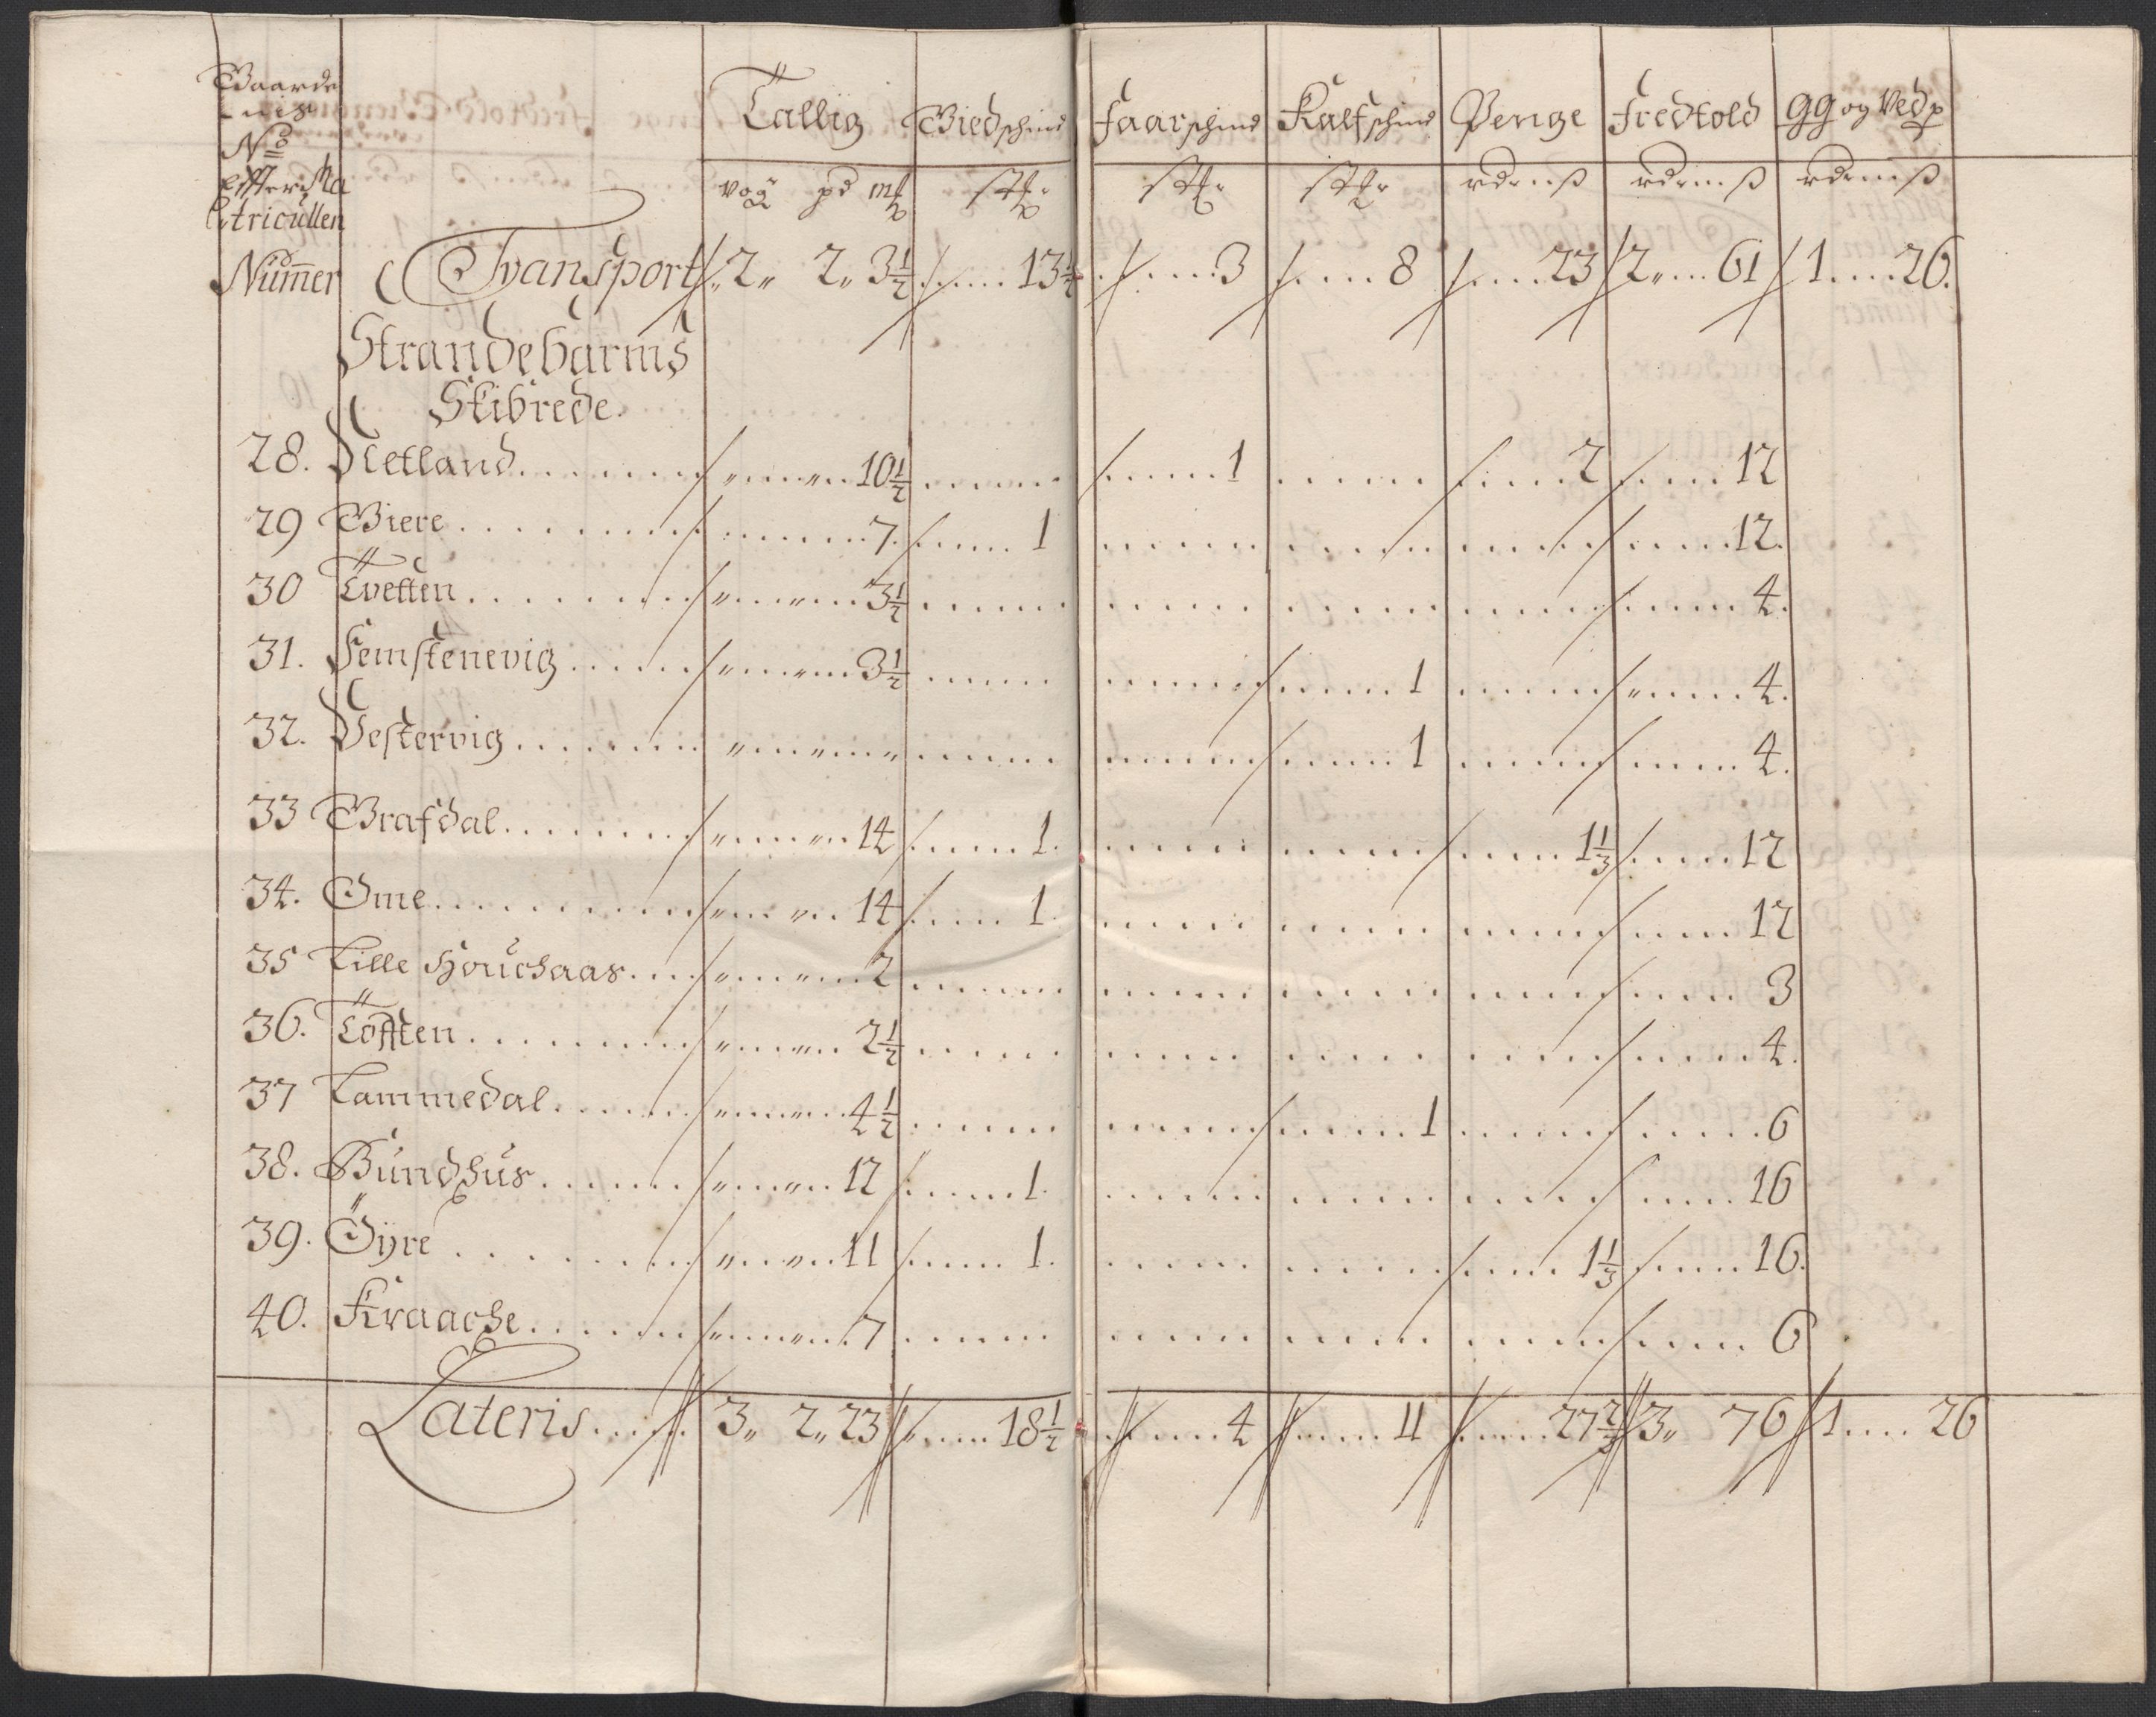 Gaarde
N<sup>o</sup>
Effter Ma
tricullen
Numer
Tallig Giedschind Faarschind Kalfschind Penge Fredtold gg og Ved
vog pd mk stk stk stk rd ß rd ß rd ß
Transport 2 2 3½ 13½ 3 8 23 2 61 1 26.
Strandebarms
Skibrede.
28. Netland 10½ 1 2 12
29 Giere 7. 1 12.
30 Tvetten 3½ 4.
31. Femstenevig 3½ 1 4.
32. Vestervig 1 4.
33 Grafdal 14 1. 1⅓ 12
34. Ome 14 1. 12
35 Lille Houchaas 2 3
36. Töfften 2½ 4.
37 Lammedal 4½ 1 6
38. Bundhus 12 1. 16
39. Öyre 11 1. 1⅓ 16.
40. Kraache 7 6
Lateris 3 2 23 18½ 4 11 27⅔ 3 76 1 26